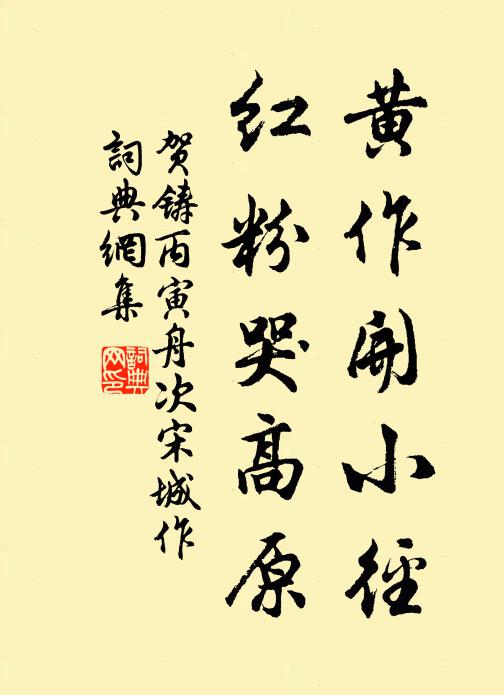 黄作開小徑
紅粉哭高原
賀鑄丙寅舟次宋城作
詞典網集
詞典網印